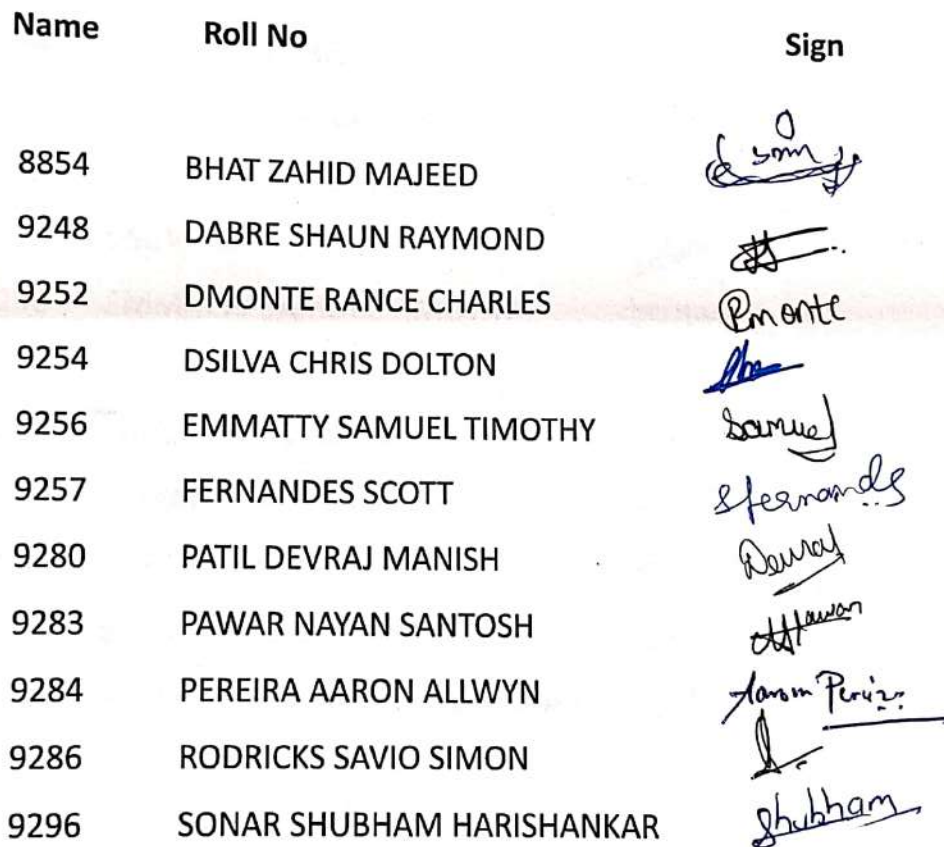 Name Roll No Sign
8854 BHAT ZAHID MAJEED
9248 DABRE SHAUN RAYMOND
9252 DMONTE RANCE CHARLES Dmonte
9254 DSILVA CHRIS DOLTON
9256 EMMATTY SAMUEL TIMOTHY Samuel
9257 FERNANDES SCOTT Sfernands
9280 PATIL DEVRAJ MANISH Devraj
9283 PAWAR NAYAN SANTOSH
9284 PEREIRA AARON ALLWYN Aaron
9286 RODRICKS SAVIO SIMON
9296 SONAR SHUBHAM HARISHANKAR Shubham